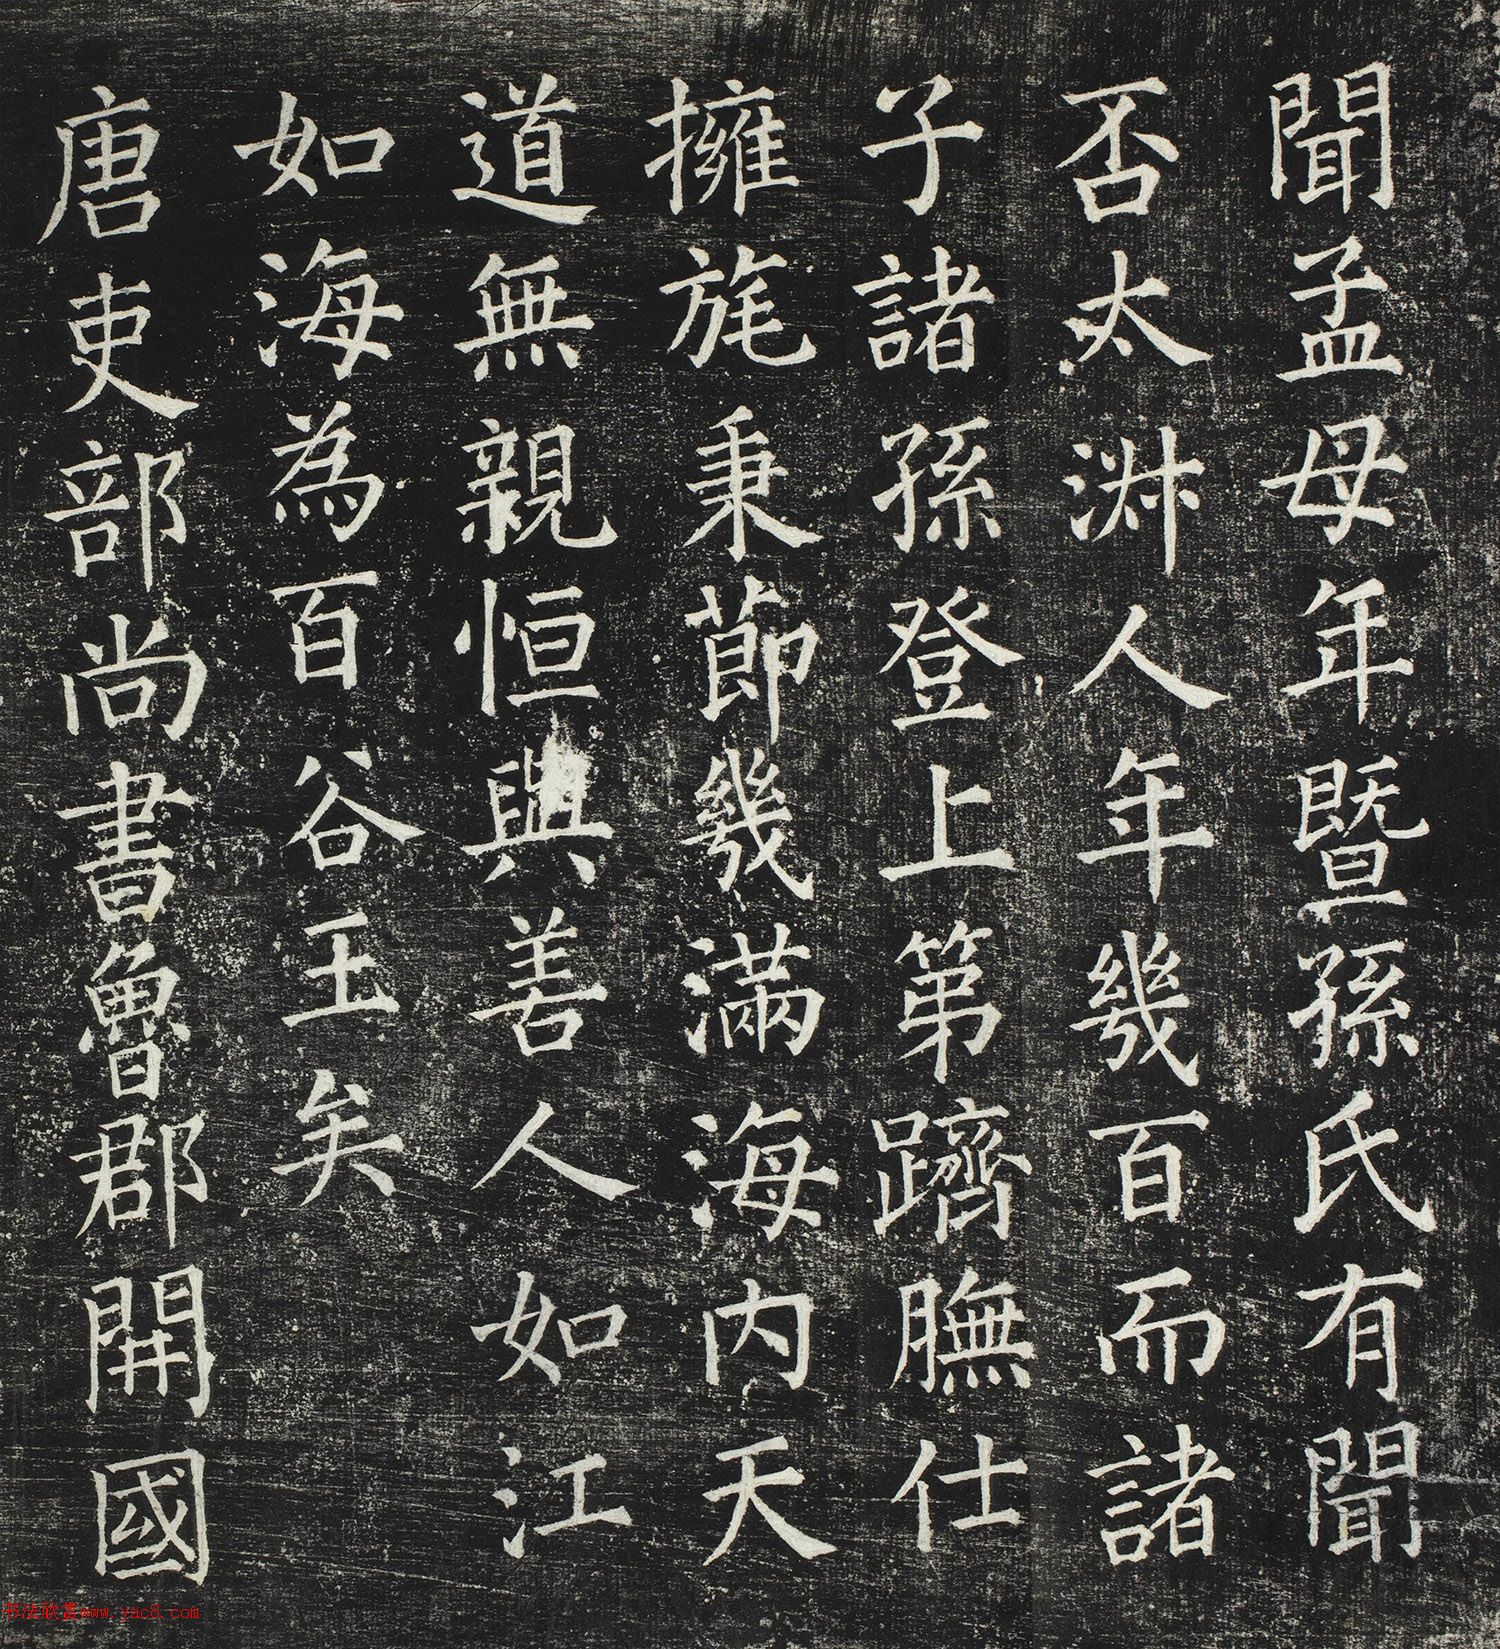 聞孟母年暨孫氏有聞
否太淋人年幾百而諸
子諸孫登上第躋膴仕
擁旄秉節幾滿海內天
道無親恒與善人如江
如海為百谷王矣
唐吏部尚書魯郡開國
书法欣赏www.yac8.com